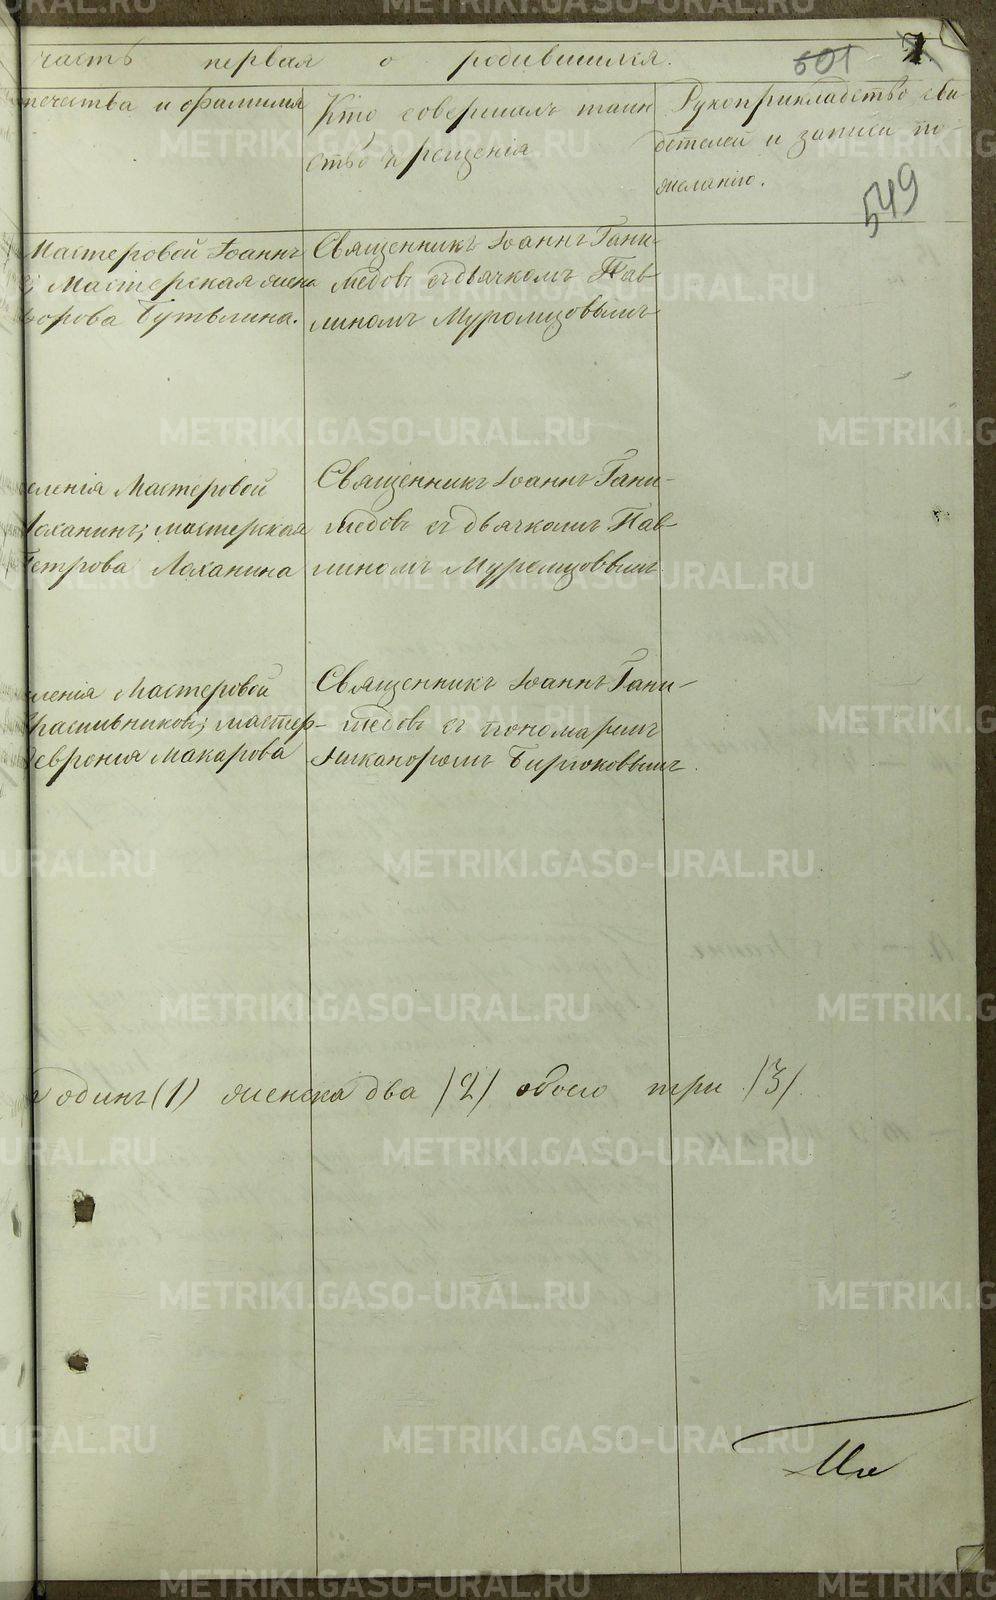 часть первая о родившихся.
601
549
отечества и фамилия
Кто совершалъ таин
ство крещенія
Рукоприкладство сви
дѣтелей и записи по
желанію.
Мастеровой Іоаннъ
Мастерская жена
Бутылина.
Священникъ Іоаннъ Гани-
медовъ съ дьячкомъ Пав-
линомъ Муромцовымъ
селенія Мастеровой
Лоханинъ; мастерская
Петрова Лоханина
Священникъ Іоаннъ Гани-
медовъ съ дьячкомъ Пав-
линомъ Муромцовымъ
селенія Мастеровой
Красильниковъ; мастер-
Февронія Макарова
Священникъ Іоаннъ Гани-
медовъ съ пономаремъ
Никаноромъ Бирюковымъ.
одинъ (1) женска два /2/ обоего три /3/.
METRIKI.GASO-URAL.RU